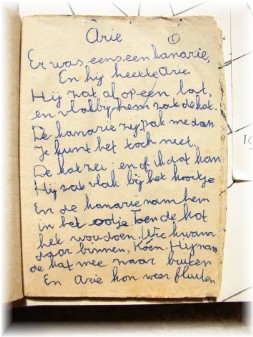 Arie
1
Er was eens een kanarie,
En hij heette Arie.
Hij zat al op een
en vlakbij hem zat de kat.
De kanarie zij pak me dan
Je kunt het toch niet.
De kat zei: en of ik dat kan
Hij zat vlak bij het hootje
En de kanarie nam hem
in het ootje Toen de kat
hek wou doen. Wie kwam
daar binnen. Koen. Hij nam
de kat mee naar buiten
En Arie kon weer fluiten